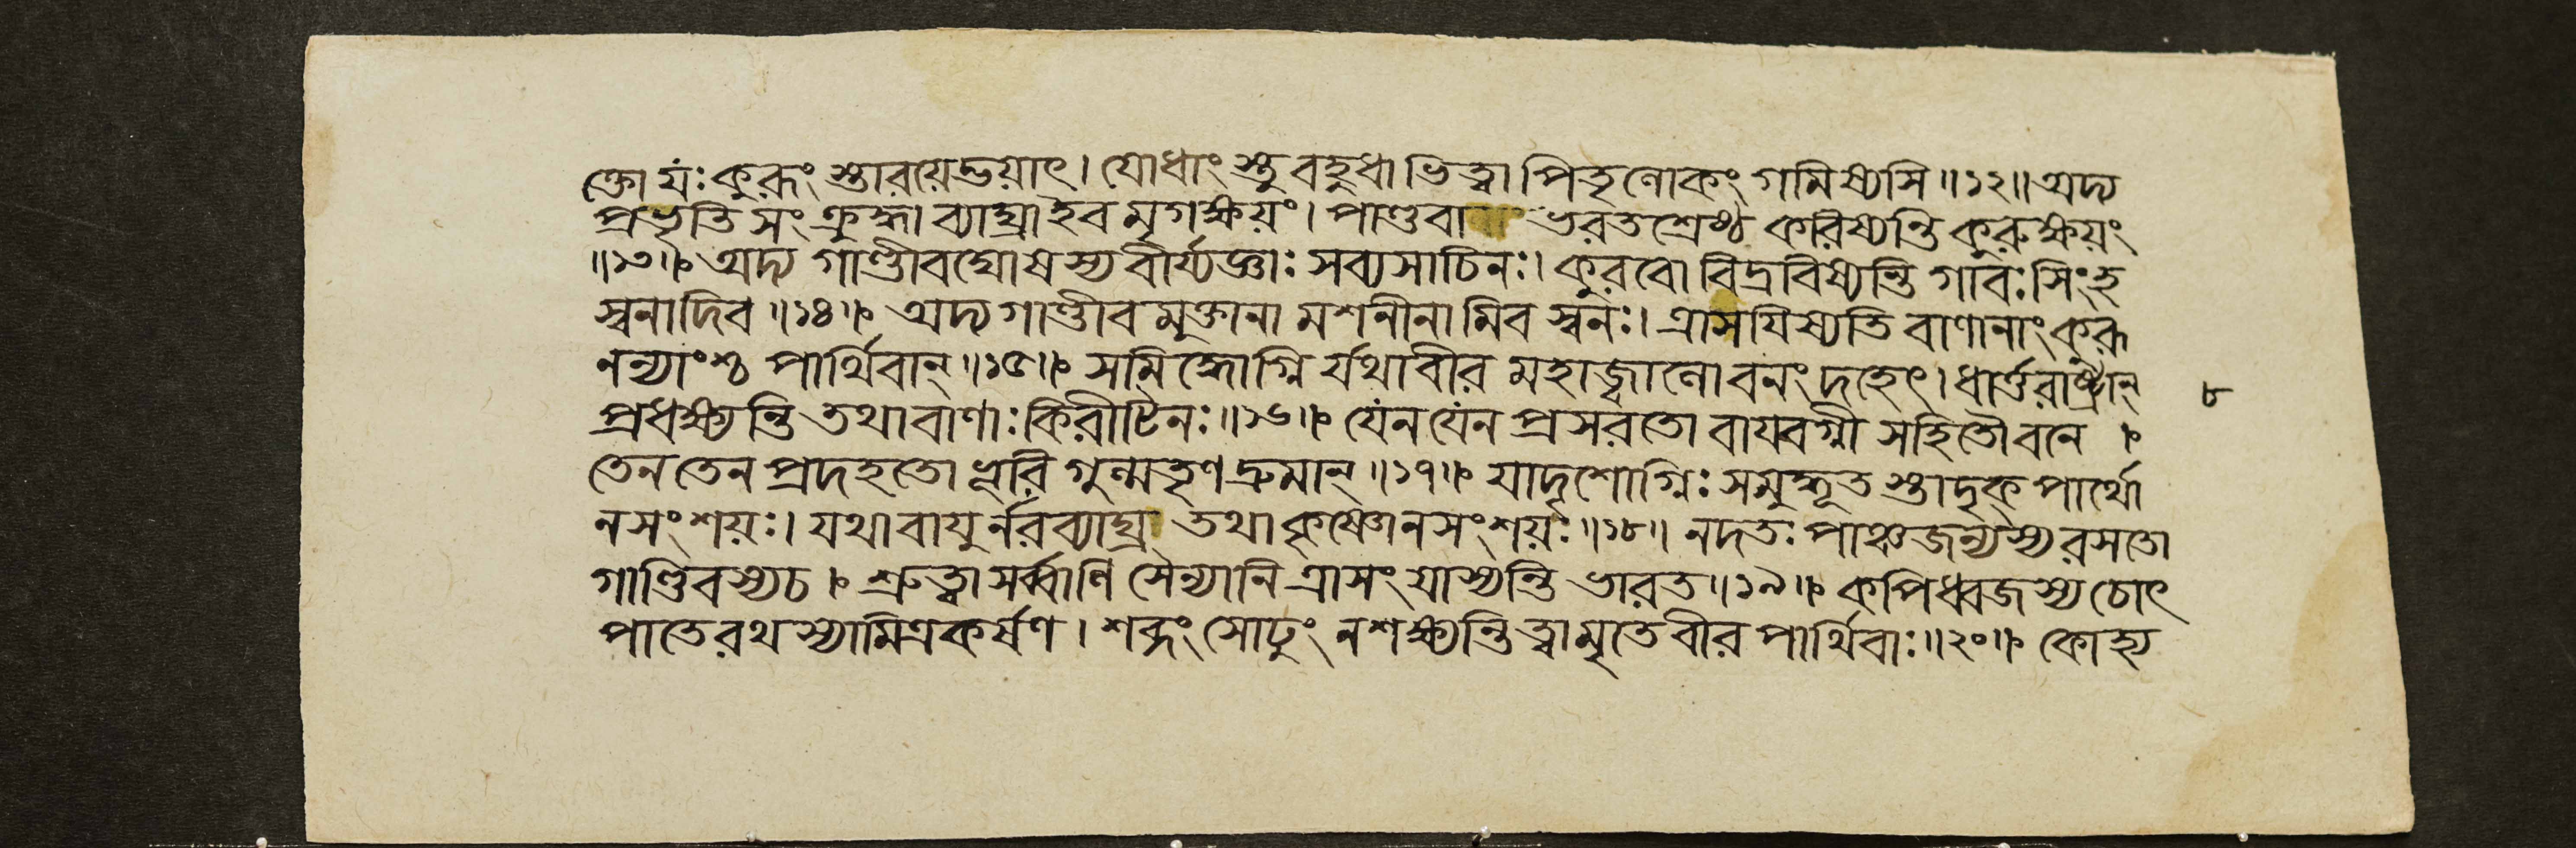 ক্তো যঃ কুরূং স্তারয়েদ্ভয়াৎ। যোধাং স্তু বহুধা ভিত্বা পিতৃলোকং গমিষ্যসি॥১২॥ অদ্য
প্রভৃতি সংক্রুদ্ধা ব্যাঘ্রা ইব মৃগক্ষয়ং। পাণ্ডবা ভরতশ্রেষ্ঠ করিষ্যন্তি কুরুক্ষয়ং
॥১৩॥ অদ্য গাণ্ডীবঘোষস্য বীর্য্যজ্ঞাঃ সব্যসাচিনঃ। কুরবো বিদ্রবিষ্যন্তি গাবঃ সিংহ
স্বনাদিব॥১৪॥ অদ্য গাণ্ডীব মুক্তানা মশনীনা মিব স্বনঃ। ত্রাসযিষ্যতি বাণানাং কুরূ
নন্যাংশ্চ পার্থিবান্॥১৫॥ সমিদ্ধোগ্নি র্যথাবীর মহাজ্বালো বনং দহেৎ। ধার্ত্তরাষ্ট্রান্ ৮
প্রধক্ষ্যন্তি তথা বাণাঃ কিরীটিনঃ॥১৬॥ যেন যেন প্রসরতো বায়বগ্নী সহিতৌ বনে।
তেন তেন প্রদহতো ভূরি গুল্মতৃণদ্রুমান্॥১৭॥ যাদৃশোগ্নিঃ সমুদ্ভূত স্তাদৃক্ পার্থো
নসংশয়ঃ। যথা বায়ুর্নরব্যাঘ্র তথা কৃষ্ণো নসংশয়ঃ॥১৮॥ নদতঃ পাঞ্চজন্যস্য রসতো
গাণ্ডিবস্যচ। শ্রুত্বা সর্ব্বাণি সৈন্যানি ত্রাসং যাস্যন্তি ভারত॥১৯॥ কপিধ্বজস্য চোৎ
পাতে রথস্যামিত্রকর্ষণ। শব্দং সোঢুং নশক্ষ্যন্তি ত্বামৃতে বীর পার্থিবাঃ॥২০॥ কোহ্য